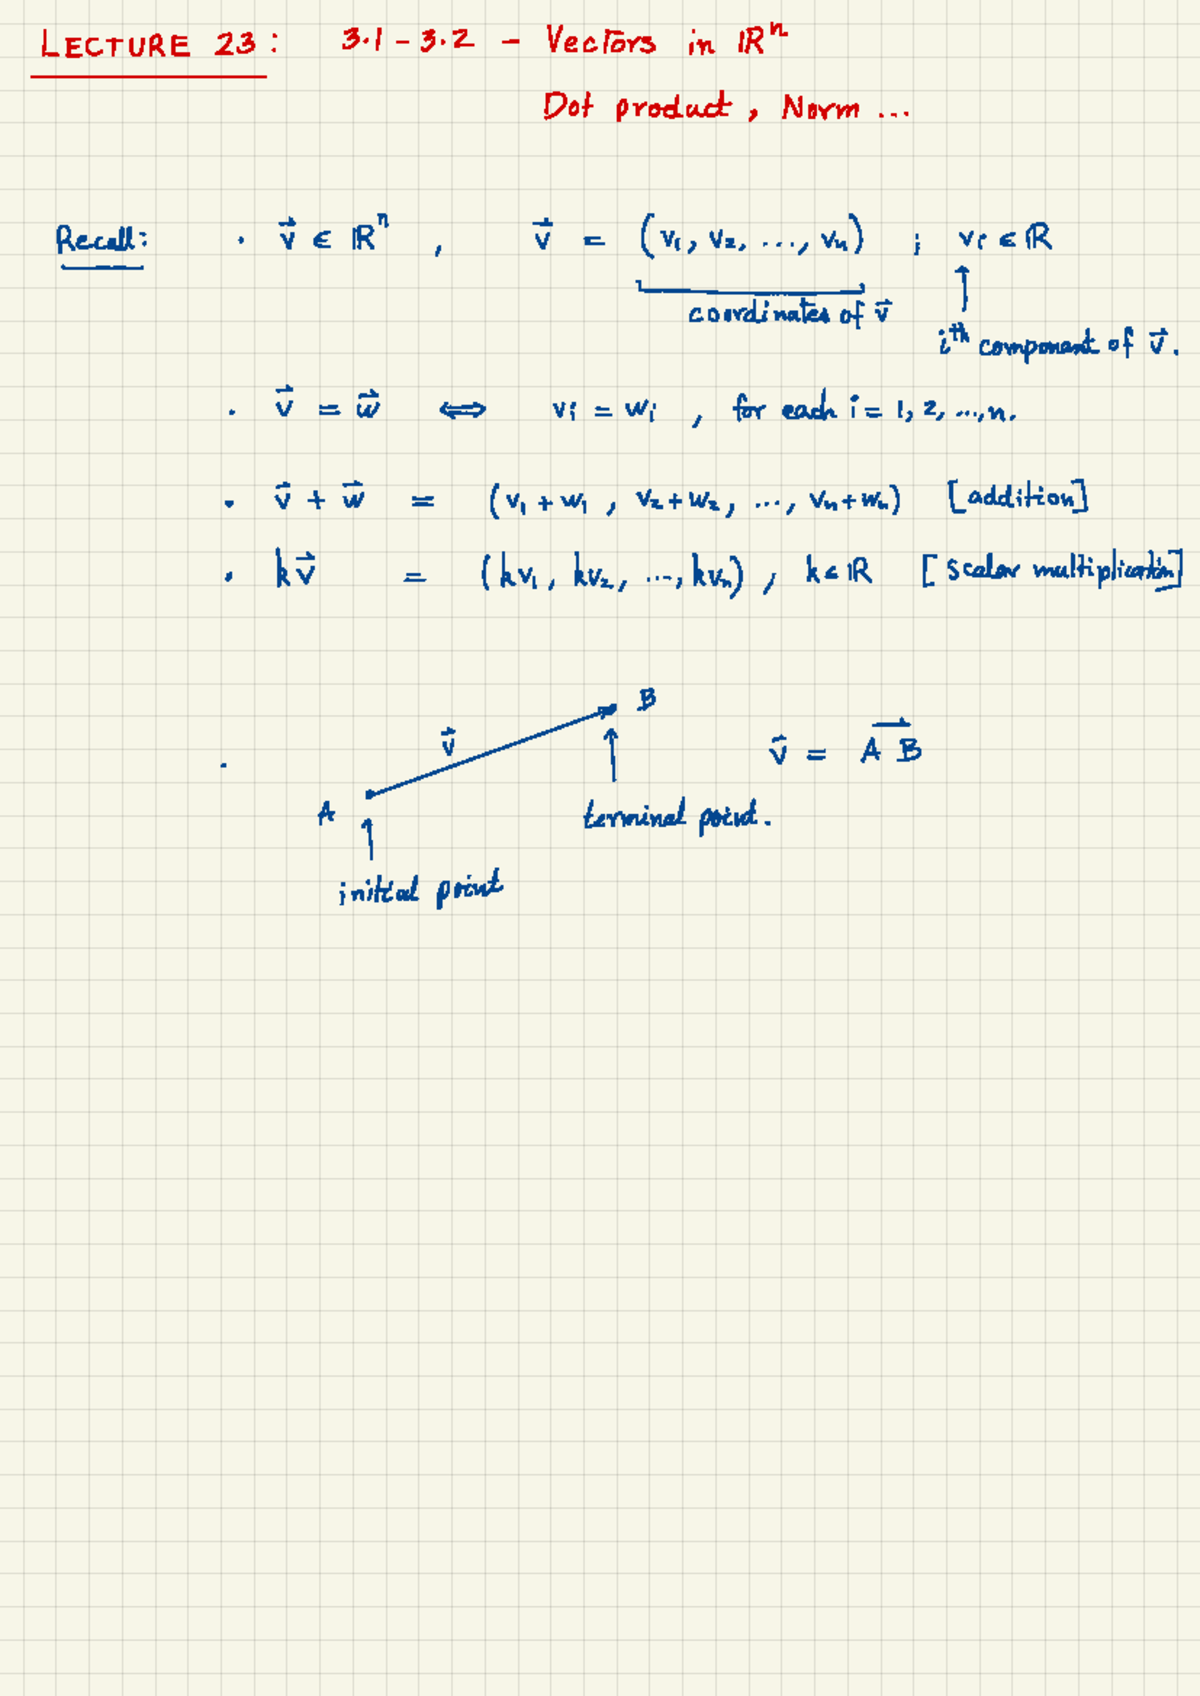 LECTURE 23: 3.1 - 3.2 - Vectors in ℝⁿ
Dot product, Norm ...
Recall: · v⃗ ∈ ℝⁿ , v⃗ = (v₁, v₂, ..., vₙ) ; vᵢ ∈ ℝ
coordinates of v⃗
iᵗʰ component of v⃗.
· v⃗ = w⃗ ⟺ vᵢ = wᵢ , for each i = 1, 2, ..., n.
· v⃗ + w⃗ = (v₁ + w₁ , v₂ + w₂, ..., vₙ + wₙ) [addition]
· kv⃗ = (kv₁, kv₂, ..., kvₙ) , k ∈ ℝ [scalar multiplication]
B
v⃗
· v⃗ = A⃗B⃗
A
terminal point.
initial point